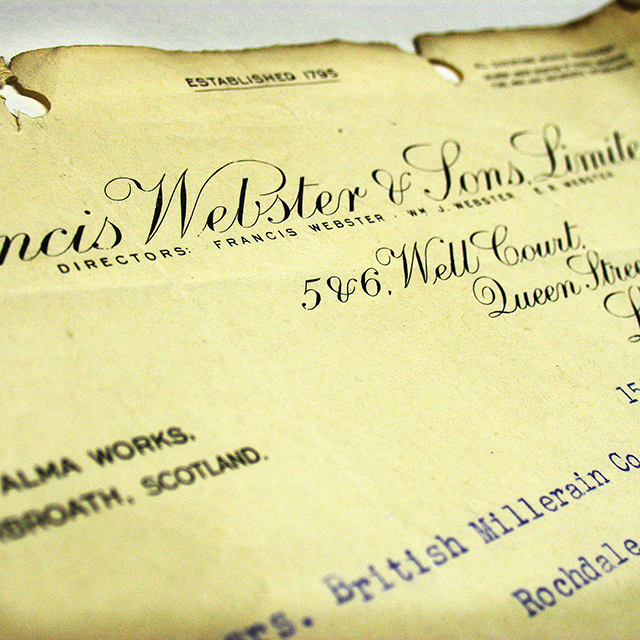 ESTABLISHED 1795
ncis Webster & Sons, Limite
DIRECTORS: FRANCIS WEBSTER · WM J. WEBSTER · E. R. WEBSTER
5&6, Well Court,
Queen Stree
15
ALMA WORKS,
BROATH, SCOTLAND.
rs. British Millerain Co
Rochdale